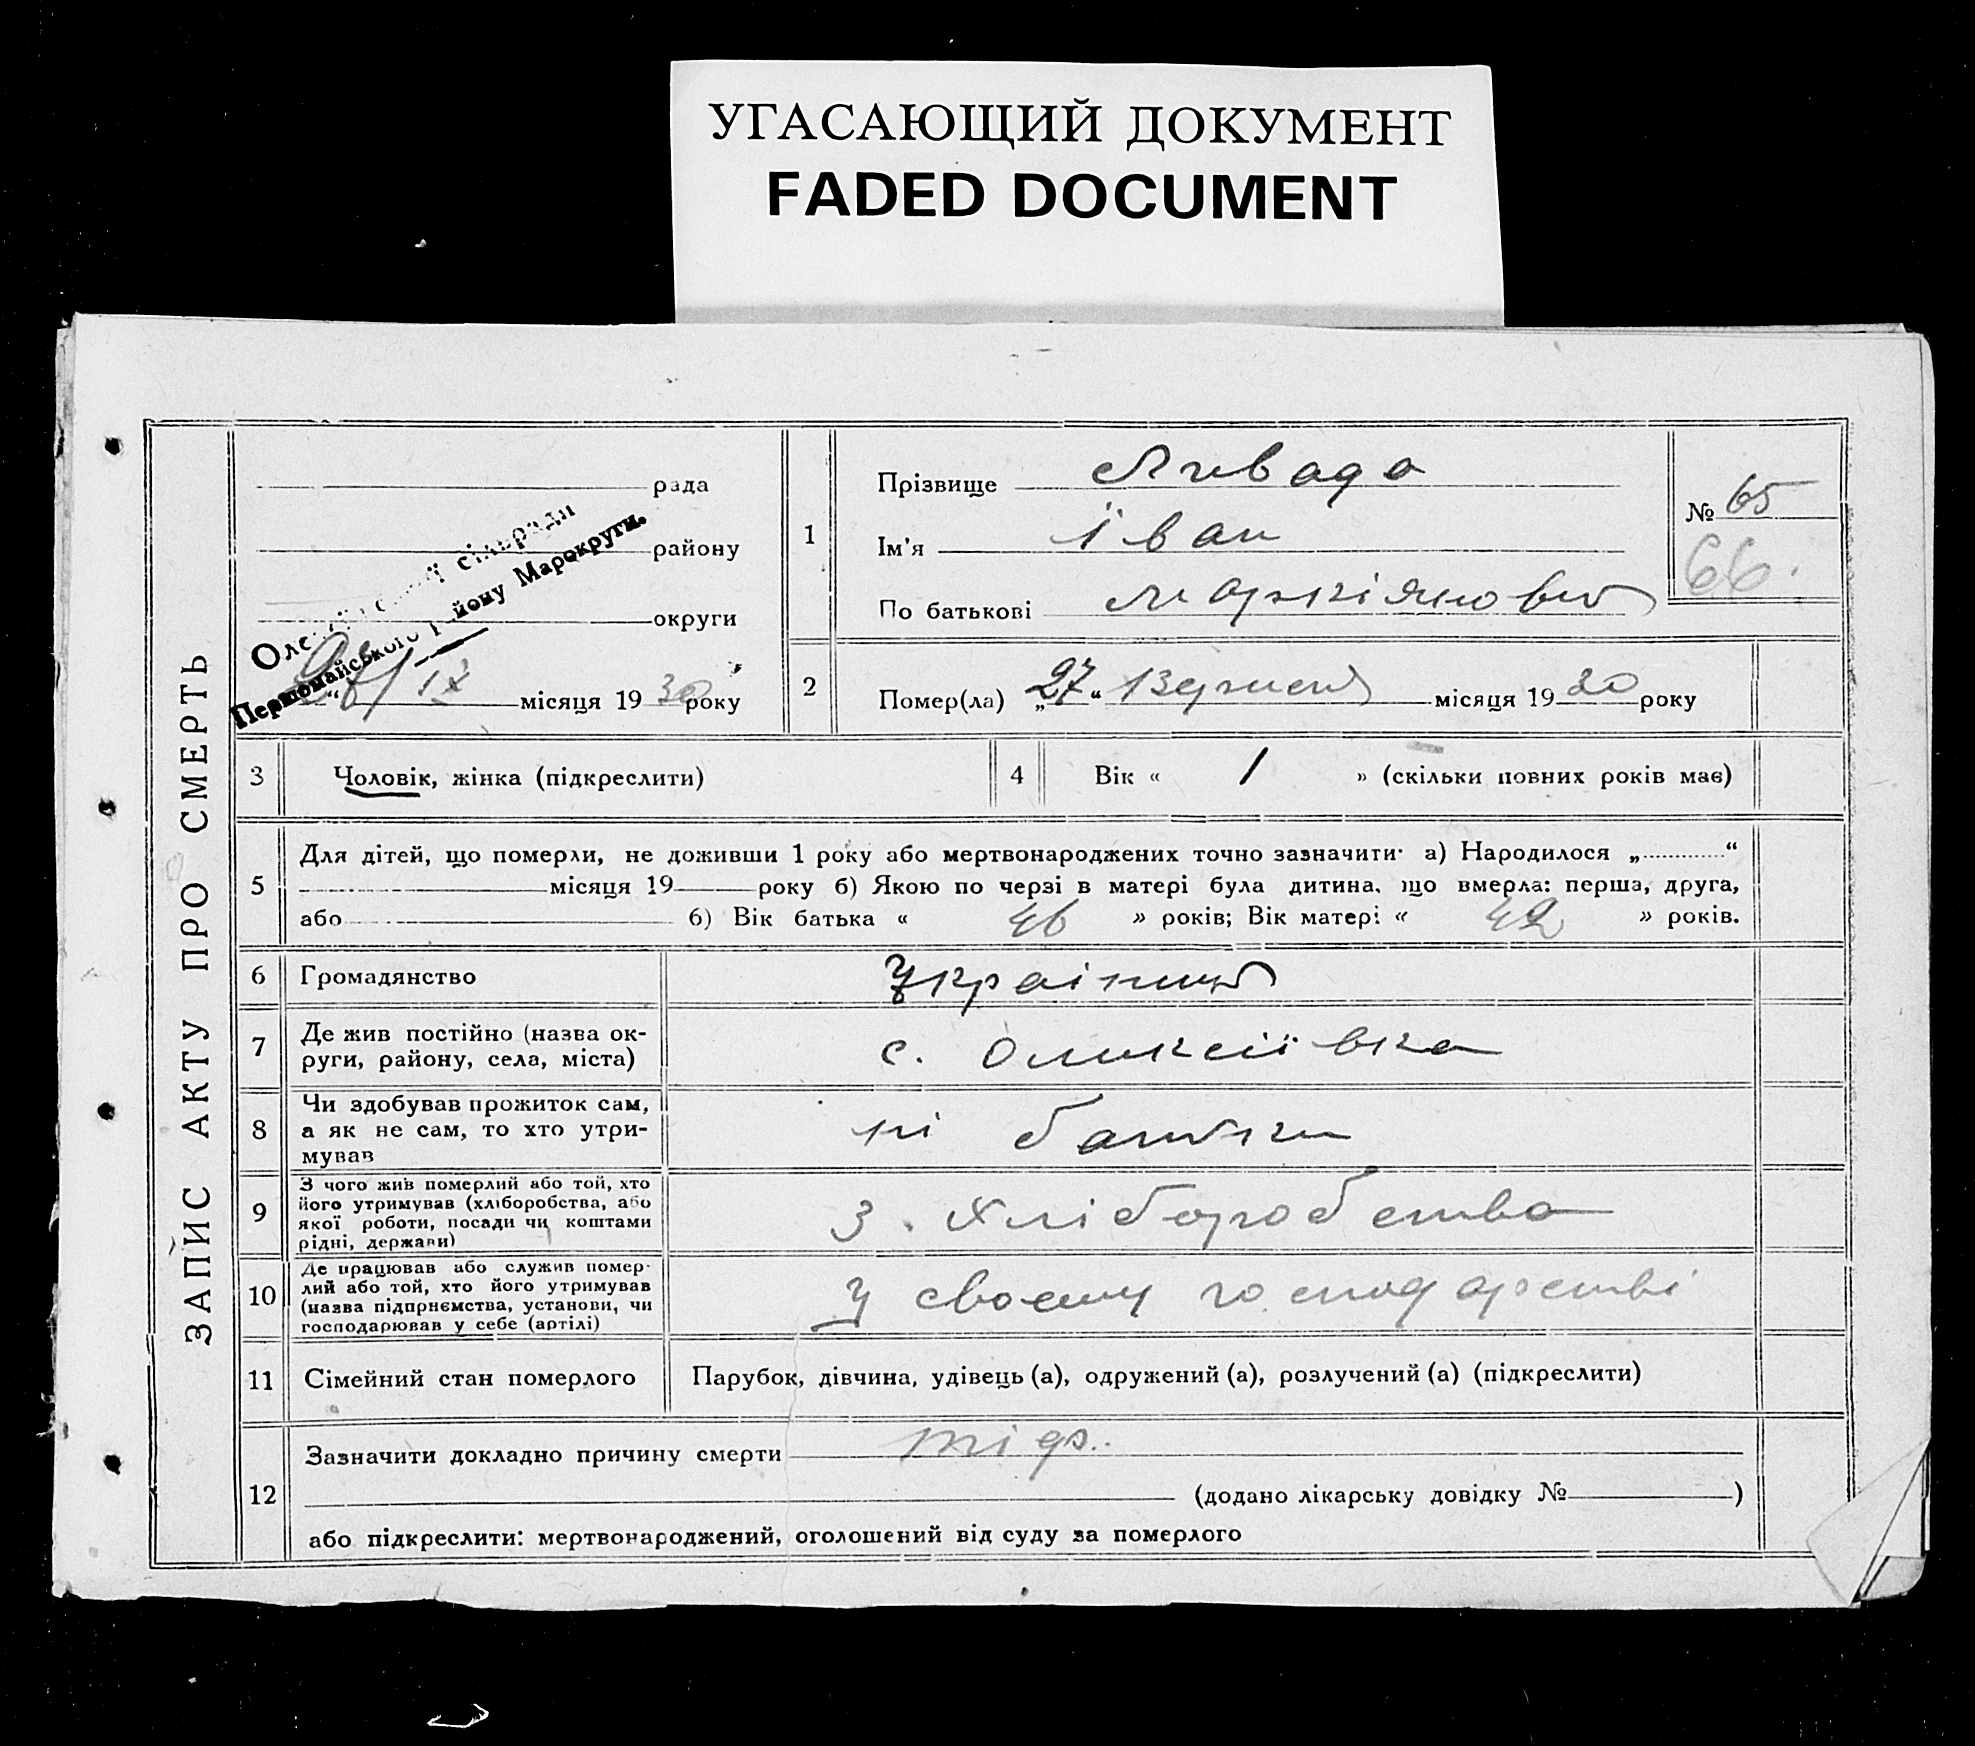 УГАСАЮЩИЙ ДОКУМЕНТ
FADED DOCUMENT
ЗАПИС АКТУ ПРО СМЕРТЬ
рада
району
округи
сільради
Першомайського району Марокруги.
IX місяця 19 30 року
1
Прізвище Ливада
Ім'я Іван
По батькові Маркіянович
№ 65
66.
2
Помер(ла) „27“ Вересня місяця 19 30 року
3 Чоловік, жінка (підкреслити)
4 Вік « 1 » (скільки повних років має)
5 Для дітей, що померли, не доживши 1 року або мертвонароджених точно зазначити: а) Народилося „ “
місяця 19 року б) Якою по черзі в матері була дитина, що вмерла: перша, друга,
або б) Вік батька « 46 » років; Вік матері « 42 » років.
6 Громадянство Українець
7 Де жив постійно (назва ок-
руги, району, села, міста)
с. Оликсіївка
8 Чи здобував прожиток сам,
а як не сам, то хто утри-
мував
ні батьки
9 З чого жив померлий або той, хто
його утримував (хліборобства, або
якої роботи, посади чи коштами
рідні, держави)
З. Хліборобства
10 Де працював або служив помер-
лий або той, хто його утримував
(назва підприємства, установи, чи
господарював у себе (артілі)
У своєму господарстві
11 Сімейний стан померлого Парубок, дівчина, удівець (а), одружений (а), розлучений (а) (підкреслити)
12 Зазначити докладно причину смерти
(додано лікарську довідку № )
або підкреслити: мертвонароджений, оголошений від суду за померлого